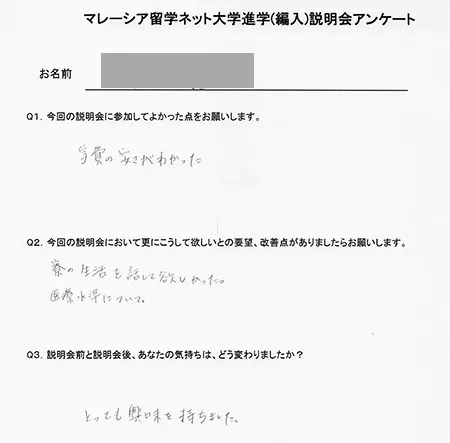 マレーシア留学ネット大学進学(編入)説明会アンケート
お名前
Q1. 今回の説明会に参加してよかった点をお願いします。
学費の安さがわかった
Q2. 今回の説明会において更にこうして欲しいとの要望、改善点がありましたらお願いします。
寮の生活を話して欲しかった。
医療水準について。
Q3. 説明会前と説明会後、あなたの気持ちは、どう変わりましたか？
とっても興味を持ちました。